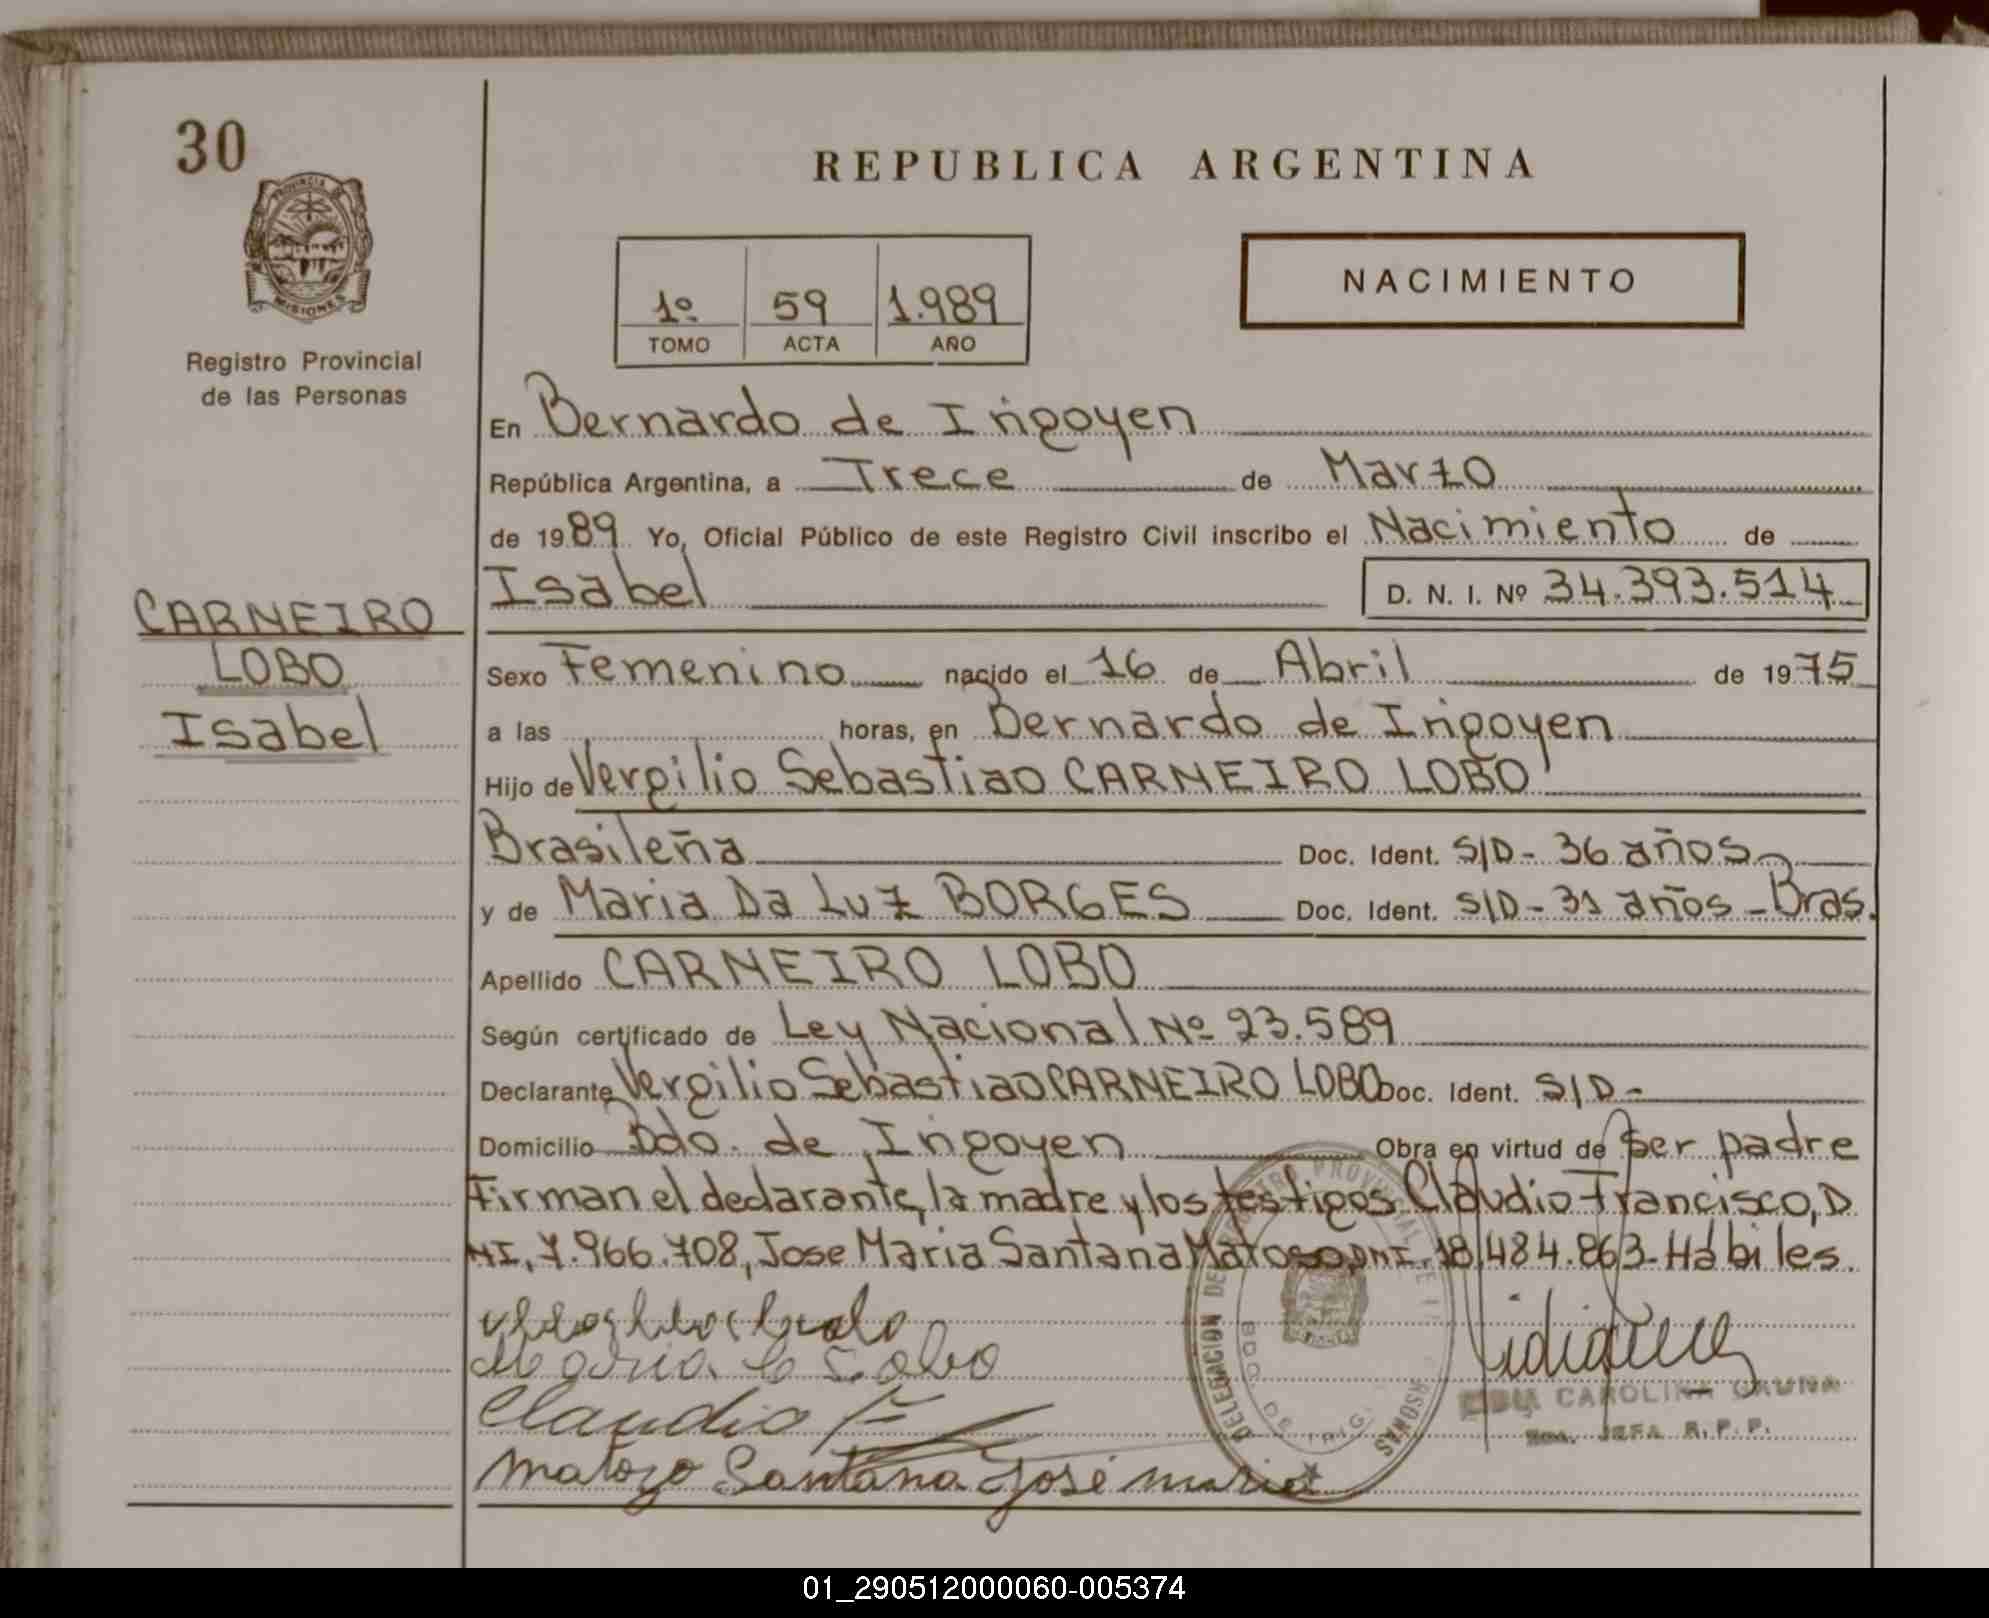 30
REPUBLICA ARGENTINA
PROVINCIA DE
MISIONES
Registro Provincial
de las Personas
1º 59 1.989
TOMO ACTA AÑO
NACIMIENTO
En Bernardo de Irigoyen
República Argentina, a Trece de Marzo
de 1989 Yo, Oficial Público de este Registro Civil inscribo el Nacimiento de
Isabel D. N. I. Nº 34.393.514
CARNEIRO
LOBO
Isabel
Sexo Femenino nacido el 16 de Abril de 1975
a las horas, en Bernardo de Irigoyen
Hijo de Vergilio Sebastiao CARNEIRO LOBO
Brasileña Doc. Ident. S/D - 36 años
y de Maria Da Luz BORGES Doc. Ident. S/D - 31 años - Bras.
Apellido CARNEIRO LOBO
Según certificado de Ley Nacional Nº 23.589
Declarante Vergilio Sebastiao CARNEIRO LOBO Doc. Ident. S/D -
Domicilio Bdo. de Irigoyen Obra en virtud de Ser padre
Firman el declarante, la madre y los testigos Claudio Francisco, D
NI, 7.966.708, Jose Maria Santana Matoso, DNI. 18.484.863 - Hábiles.
Maria Lobo
Claudio F
Matozo Santana José maria
DELEGACION DE REGISTRO PROVINCIAL DE PERSONAS
BDO. DE IRIG.
CAROLINA
JEFA R. P. P.
01_290512000060-005374